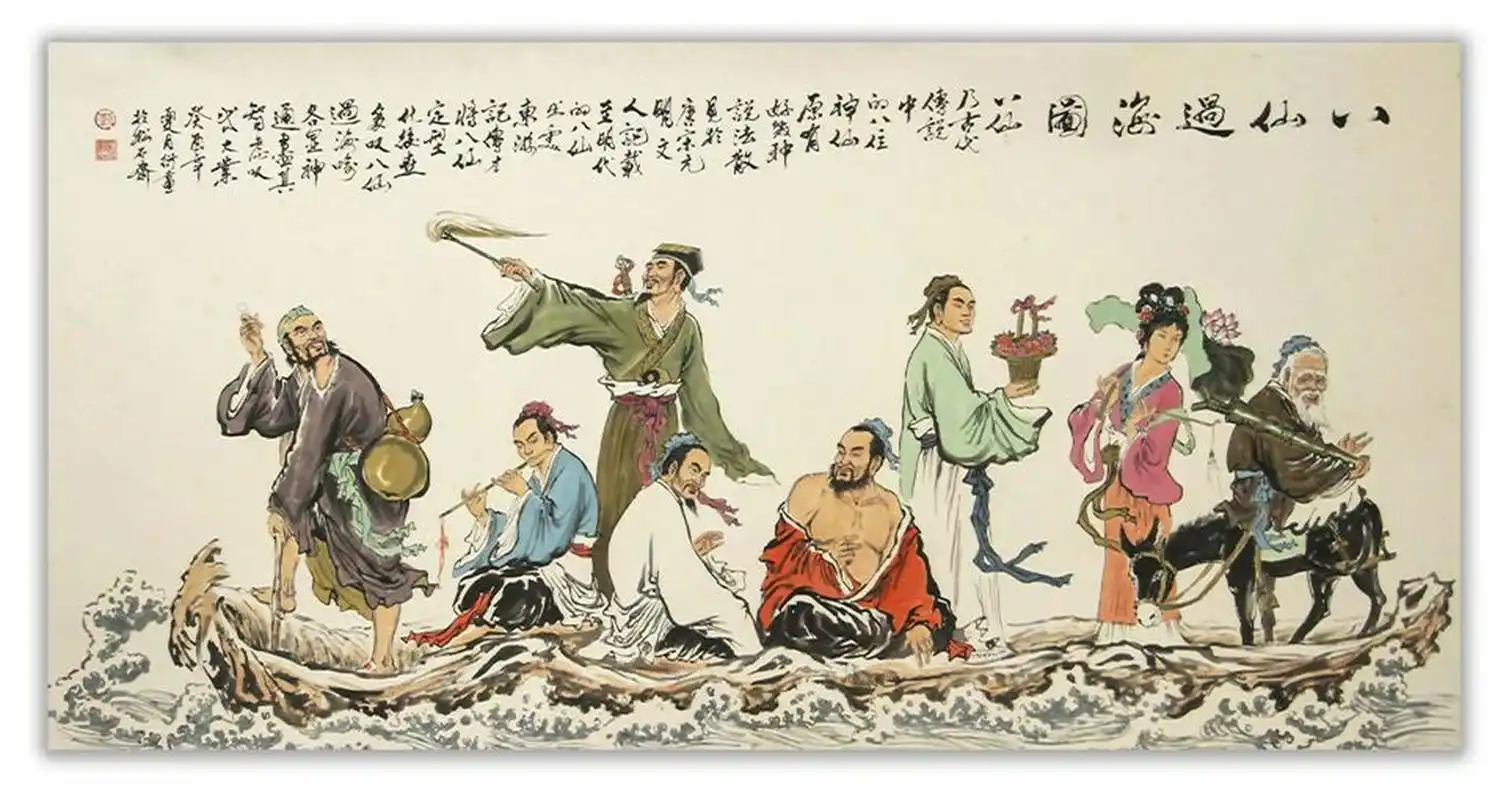 八仙過海圖
八仙
乃古代
傳說
中
的八位
神仙
原有
好幾种
說法散
見於
唐宋元
明文
人記載
至明代
的八仙
出處
東游
記傳才
將八仙
定型
化後
多以八仙
過海喻
各显神
通盡其
智慧以
成大業
癸酉年
夏月
於石齋